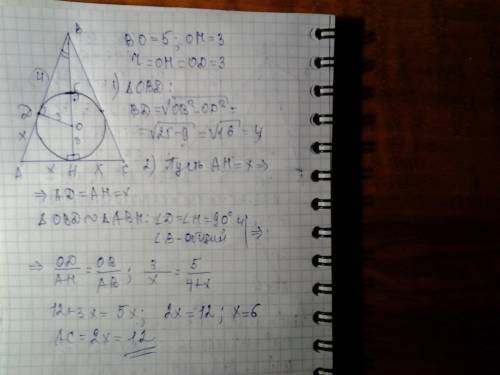 B
4
5
D
3
O
x
3
A
x
H
x
C
BO=5; OH=3
r=OH=OD=3
1) ΔOBD:
BD=√OB²-OD²=
=√25-9=√16=4
2) Пусть AH=x ⇒
⇒ AD=AH=x
ΔOBD∾ΔABH: ∠D=∠H=90° и
∠B-общий ⇒
⇒ OD/AH = OB/AB; 3/x = 5/4+x
12+3x=5x; 2x=12; x=6
AC=2x=12